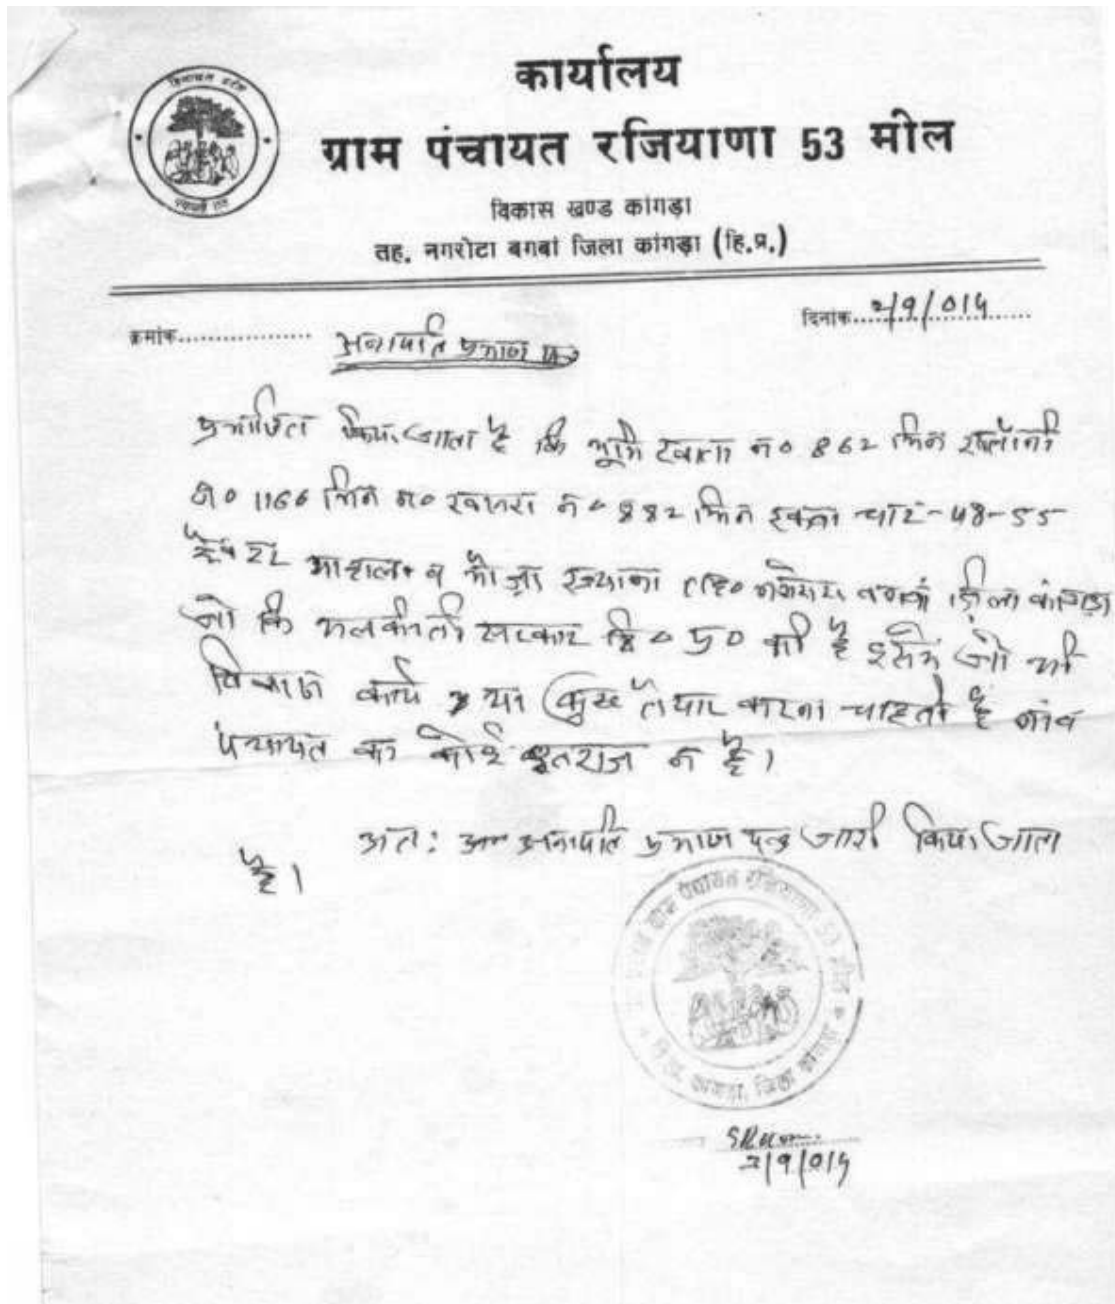 हिमाचल प्रदेश
पंचायती राज
कार्यालय
ग्राम पंचायत रजियाणा 53 मील
विकास खण्ड कांगड़ा
तह. नगरोटा बगबां जिला कांगड़ा (हि.प्र.)
क्रमांक................ दिनांक...2/9/014......
अनापति प्रमाण पत्र
प्रमाणित किया जाता है कि भूमि खाता न० 862 मिन खतौनी
न० 1166 मिन न० खसरा न० 882 मिन रकबा चार-48-55
है० महाल व मौजा रज्याना तहि० नगरोटा बगवां ज़िला कांगड़ा
जो कि मलकीती सरकार हि० प्र० की है इसमें जो भी
कार्य या कुछ तैयार करना चाहती है
पंचायत का कोई इतराज न है।
अतः अनापति प्रमाण पत्र जारी किया जाता
है।
ग्राम पंचायत रजियाणा 53 मील
वि.ख. कांगड़ा, जिला कांगड़ा
2/9/014